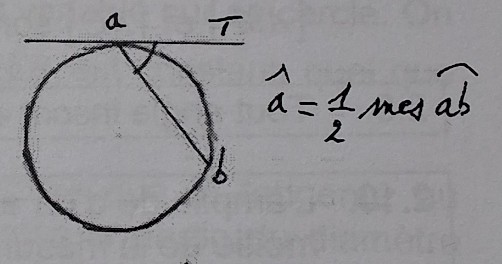 a T
b
â = 1/2 mes a͡b